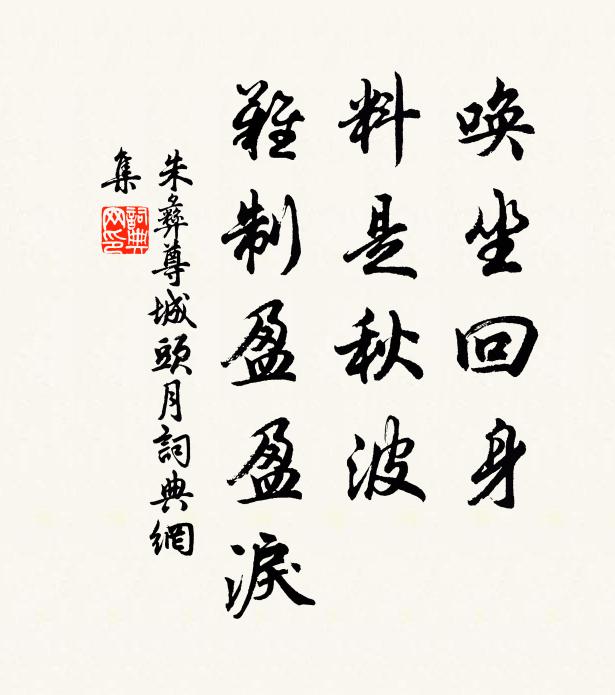 喚坐回身
料是秋波
難制盈盈淚
朱彝尊城頭月詞典網
集
詞典
网印